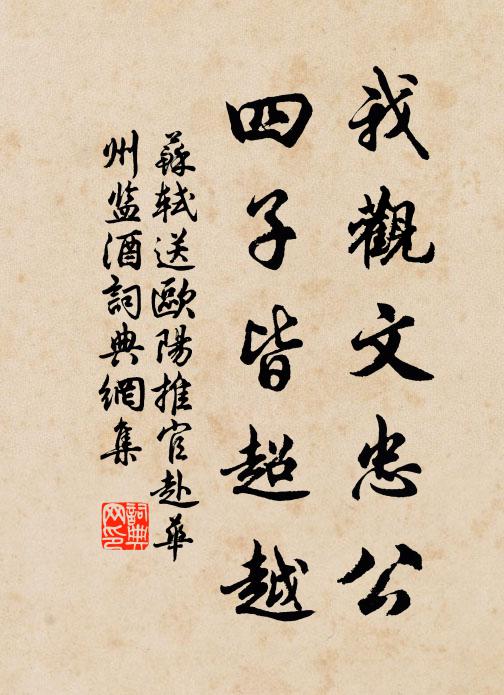 我觀文忠公
四子皆超越
蘇軾送歐陽推官赴華
州監酒詞典網集
詞典
网印